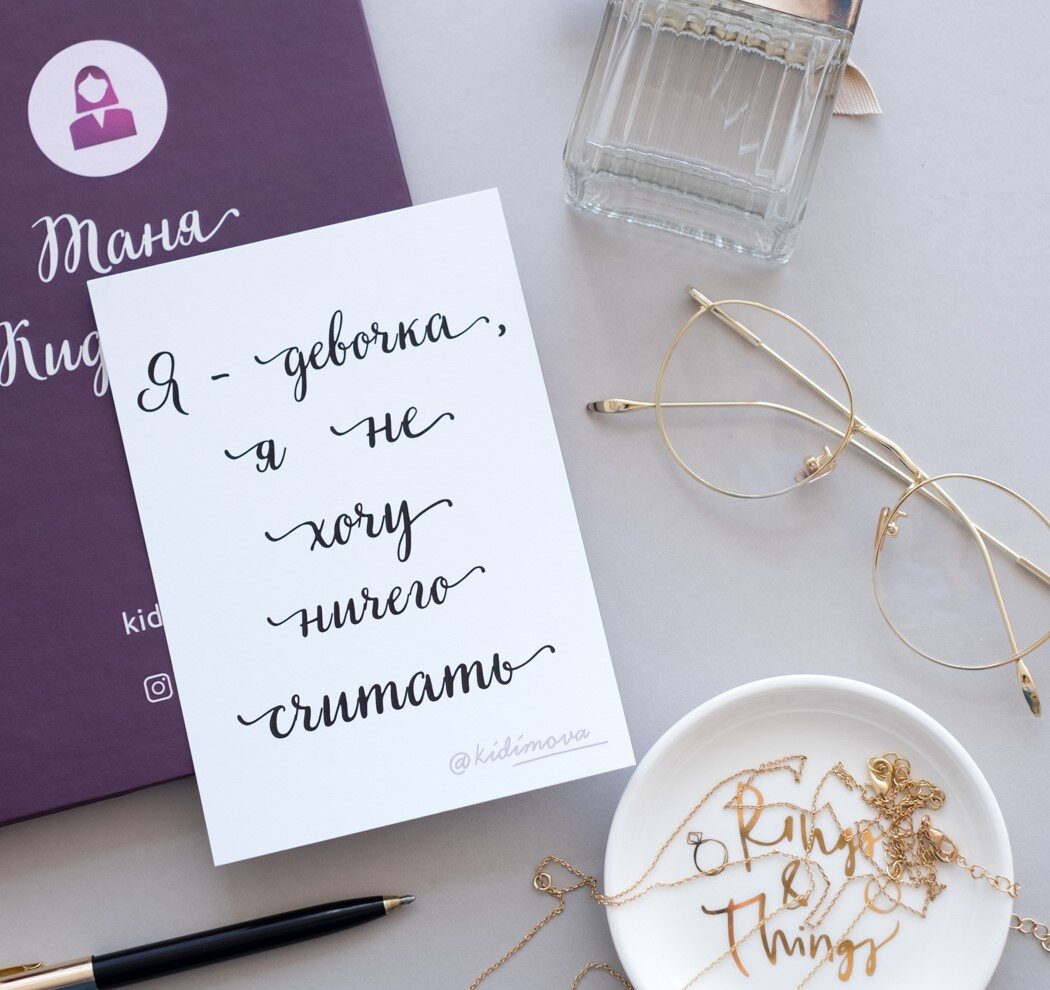 Таня
Я - девочка,
я не
хочу
ничего
считать
@kidimova
Rings
&
Things